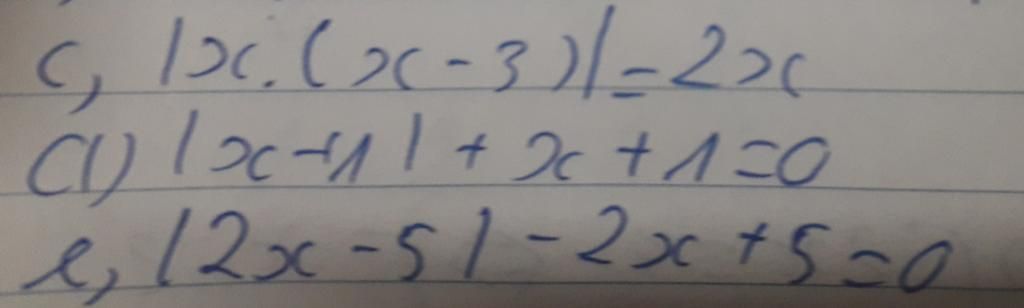 c, |x.(x-3)|=2x
d) |x+1|+x+1=0
e, |2x-5|-2x+5=0